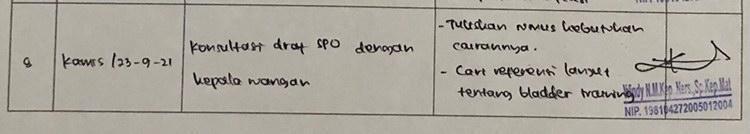 8
Kamis /23-9-21
Konsultasi draf SPO dengan
kepala ruangan
- Tuliskan rumus kebutuhan
cairannya.
- Cari referensi lanjut
tentang bladder training
N.M.Kep. Ners.,Sp.Kep.Mat
NIP. 198104272005012004